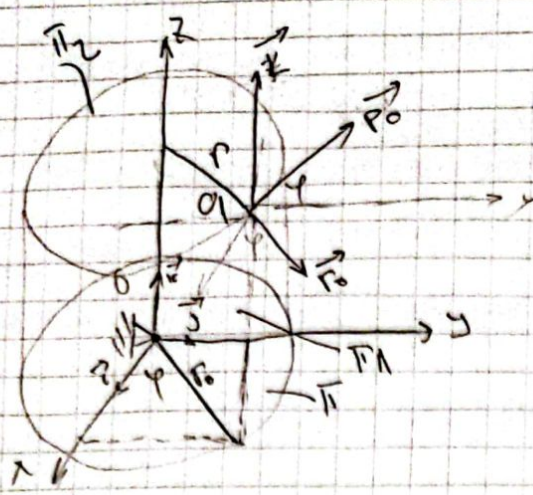 π₂
z
k⃗
p⃗₀
r
φ
O₁
y
φ
r⃗₀
O
k⃗
j⃗
y
i⃗
φ
r₀
π₁
π
x